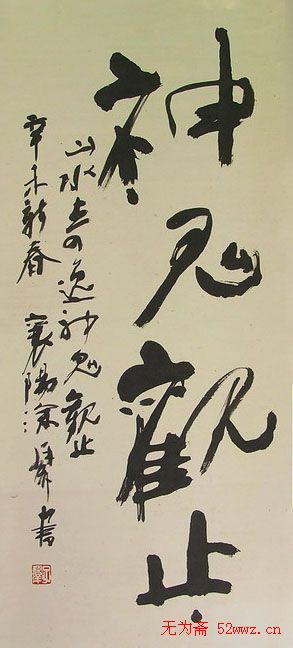 神鬼觀止
山水
神鬼觀止
辛未新春 襄陽涂廷多書
无为斋 52wwz.cn